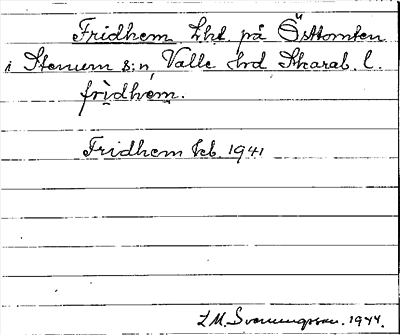 Fridhem Lht. på Östtomten
i Stenum s:n, Valle hrd Skarab. l.
fridhem.
Fridhem kb. 1941
1944.